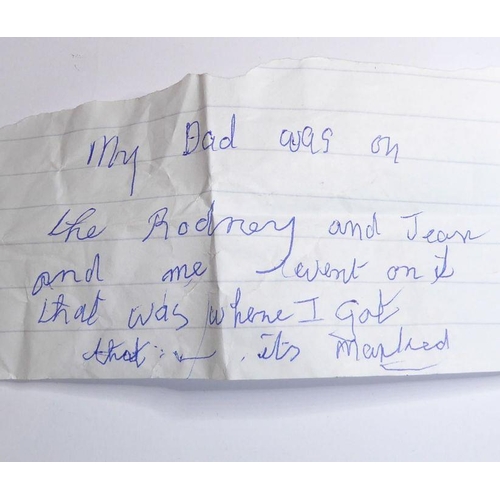 My Dad was on
the Rodney and Jean
and me went on it
that was where I got
that its Marked